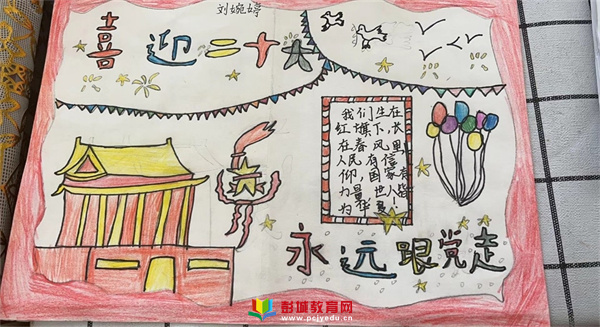 刘婉婷
喜迎二十大
我们生在
红旗下,长
在春风里,
人民有信
仰,国家有
永远跟党走
彭城教育网
www.pcjyedu.cn